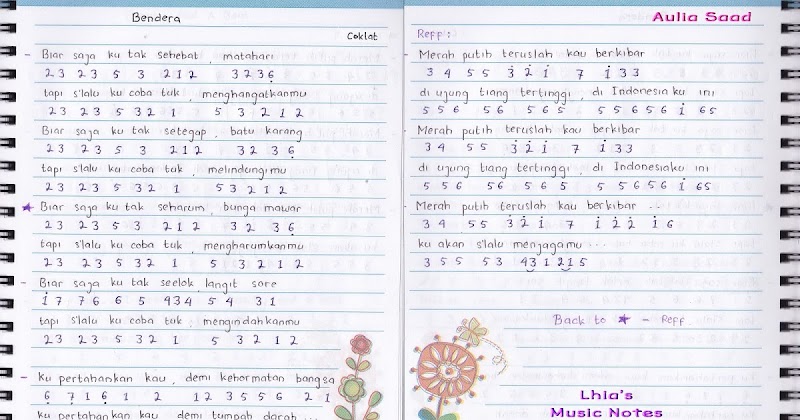 Bendera
Coklat
- Biar saja ku tak sehebat, matahari
23 23 5 3 212 3236
tapi s'lalu ku coba tuk, menghangatkanmu
23 23 5 32 1 5 3 2 1 2
Biar saja ku tak setegap, batu karang
23 23 5 3 212 32 36
tapi s'lalu ku coba tuk, melindungimu
23 23 5 32 1 5 3 2 1 2
★ Biar saja ku tak seharum, bunga mawar
23 23 5 3 212 32 36
tapi s'lalu ku coba tuk, mengharumkanmu
23 23 5 32 1 5 3 2 1 2
- Biar saja ku tak seelok, langit sore
i7 76 6 5 434 5 4 31
tapi s'lalu ku coba tuk, mengindahkanmu
23 23 5 32 1 5 3 2 1 2
- Ku pertahankan kau, demi kehormatan bangsa
6 7 1 6 1 2 1 2 3 5 5 6 2 1
ku pertahankan kau demi tumpah darah ...
Aulia Saad
Reff :
- Merah putih teruslah kau berkibar
3 4 5 5 3̇ 2̇ i 7 i 3̇ 3̇
di ujung tiang tertinggi, di Indonesia ku ini
5 5 6 5 6 5 6 5 5 5 6 5 6 i 65
Merah putih teruslah kau berkibar
3 4 5 5 3̇ 2̇ i 7 i 3̇ 3̇
di ujung tiang tertinggi, di Indonesiaku ini
5 5 6 5 6 5 6 5 5 5 6 5 6 i 65
Merah putih teruslah kau berkibar ..
3 4 5 5 3̇ 2̇ i 7 i 2̇ 2̇ i 6
ku akan s'lalu menjagamu ...
3 5 5 5 3 431215
Back to ★ - Reff
Lhia's
Music Notes